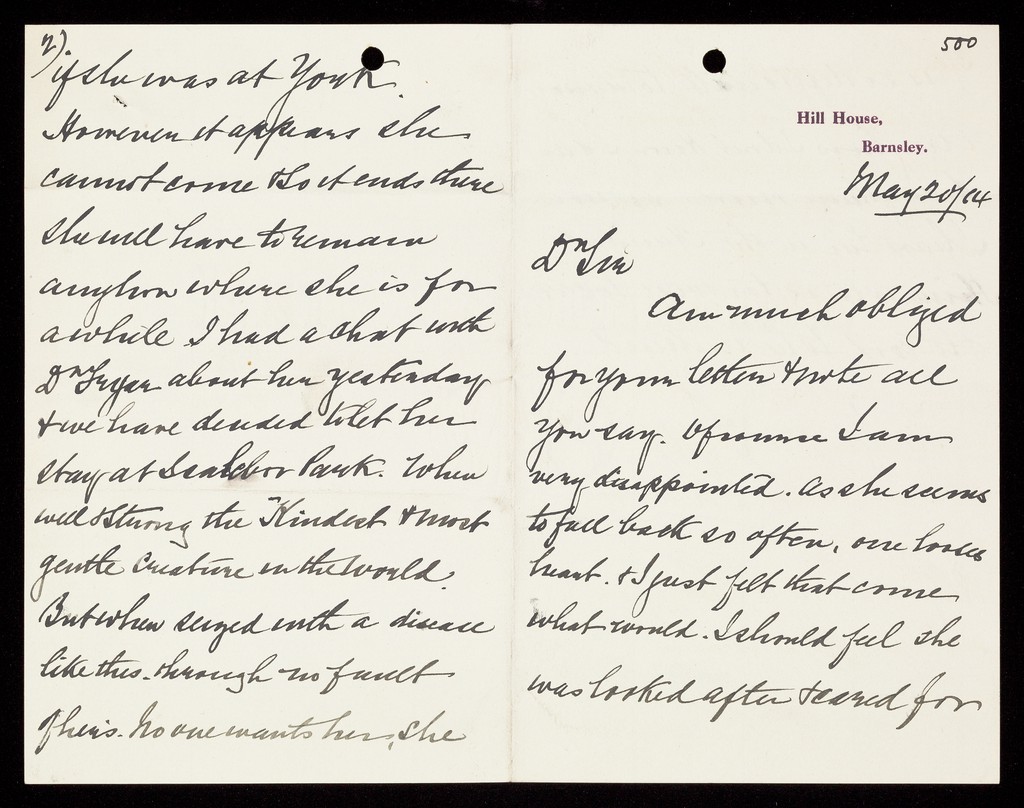 500
Hill House,
Barnsley.
May 20/14
Dr Sir
Am much obliged
for your letter & note all
you say. Of course I am
very disappointed. as she seems
to fall back so often, one looses
heart. & I just felt that come
what would. I should feel she
was looked after & cared for
2)
if she was at York.
However it appears she
cannot come & so it ends there
she will have to remain
anyhow where she is for
a while. I had a chat with
Dr about her yesterday
& we have decided to let her
stay at Park. When
well & strong the Kindest & most
gentle Creature in the World.
But when seized with a disease
like this. through no fault
of hers. No one wants her, she